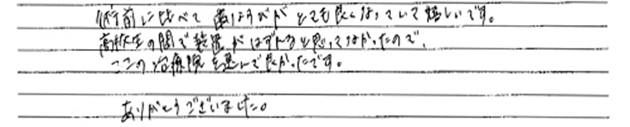 術前に比べて歯ならびがとても良くなっていて嬉しいです。
高校生の間で装置がはずれると思ってなかったので、
ここの治療院を選んで良かったです。
ありがとうございました。